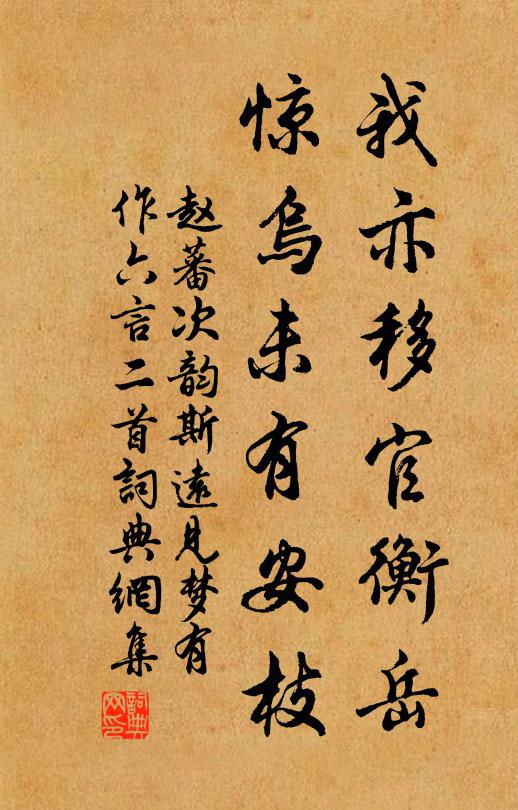 我亦移官衡岳
惊乌未有安枝
赵蕃次韵斯远见梦有
作六言二首詞典網集
詞典网印